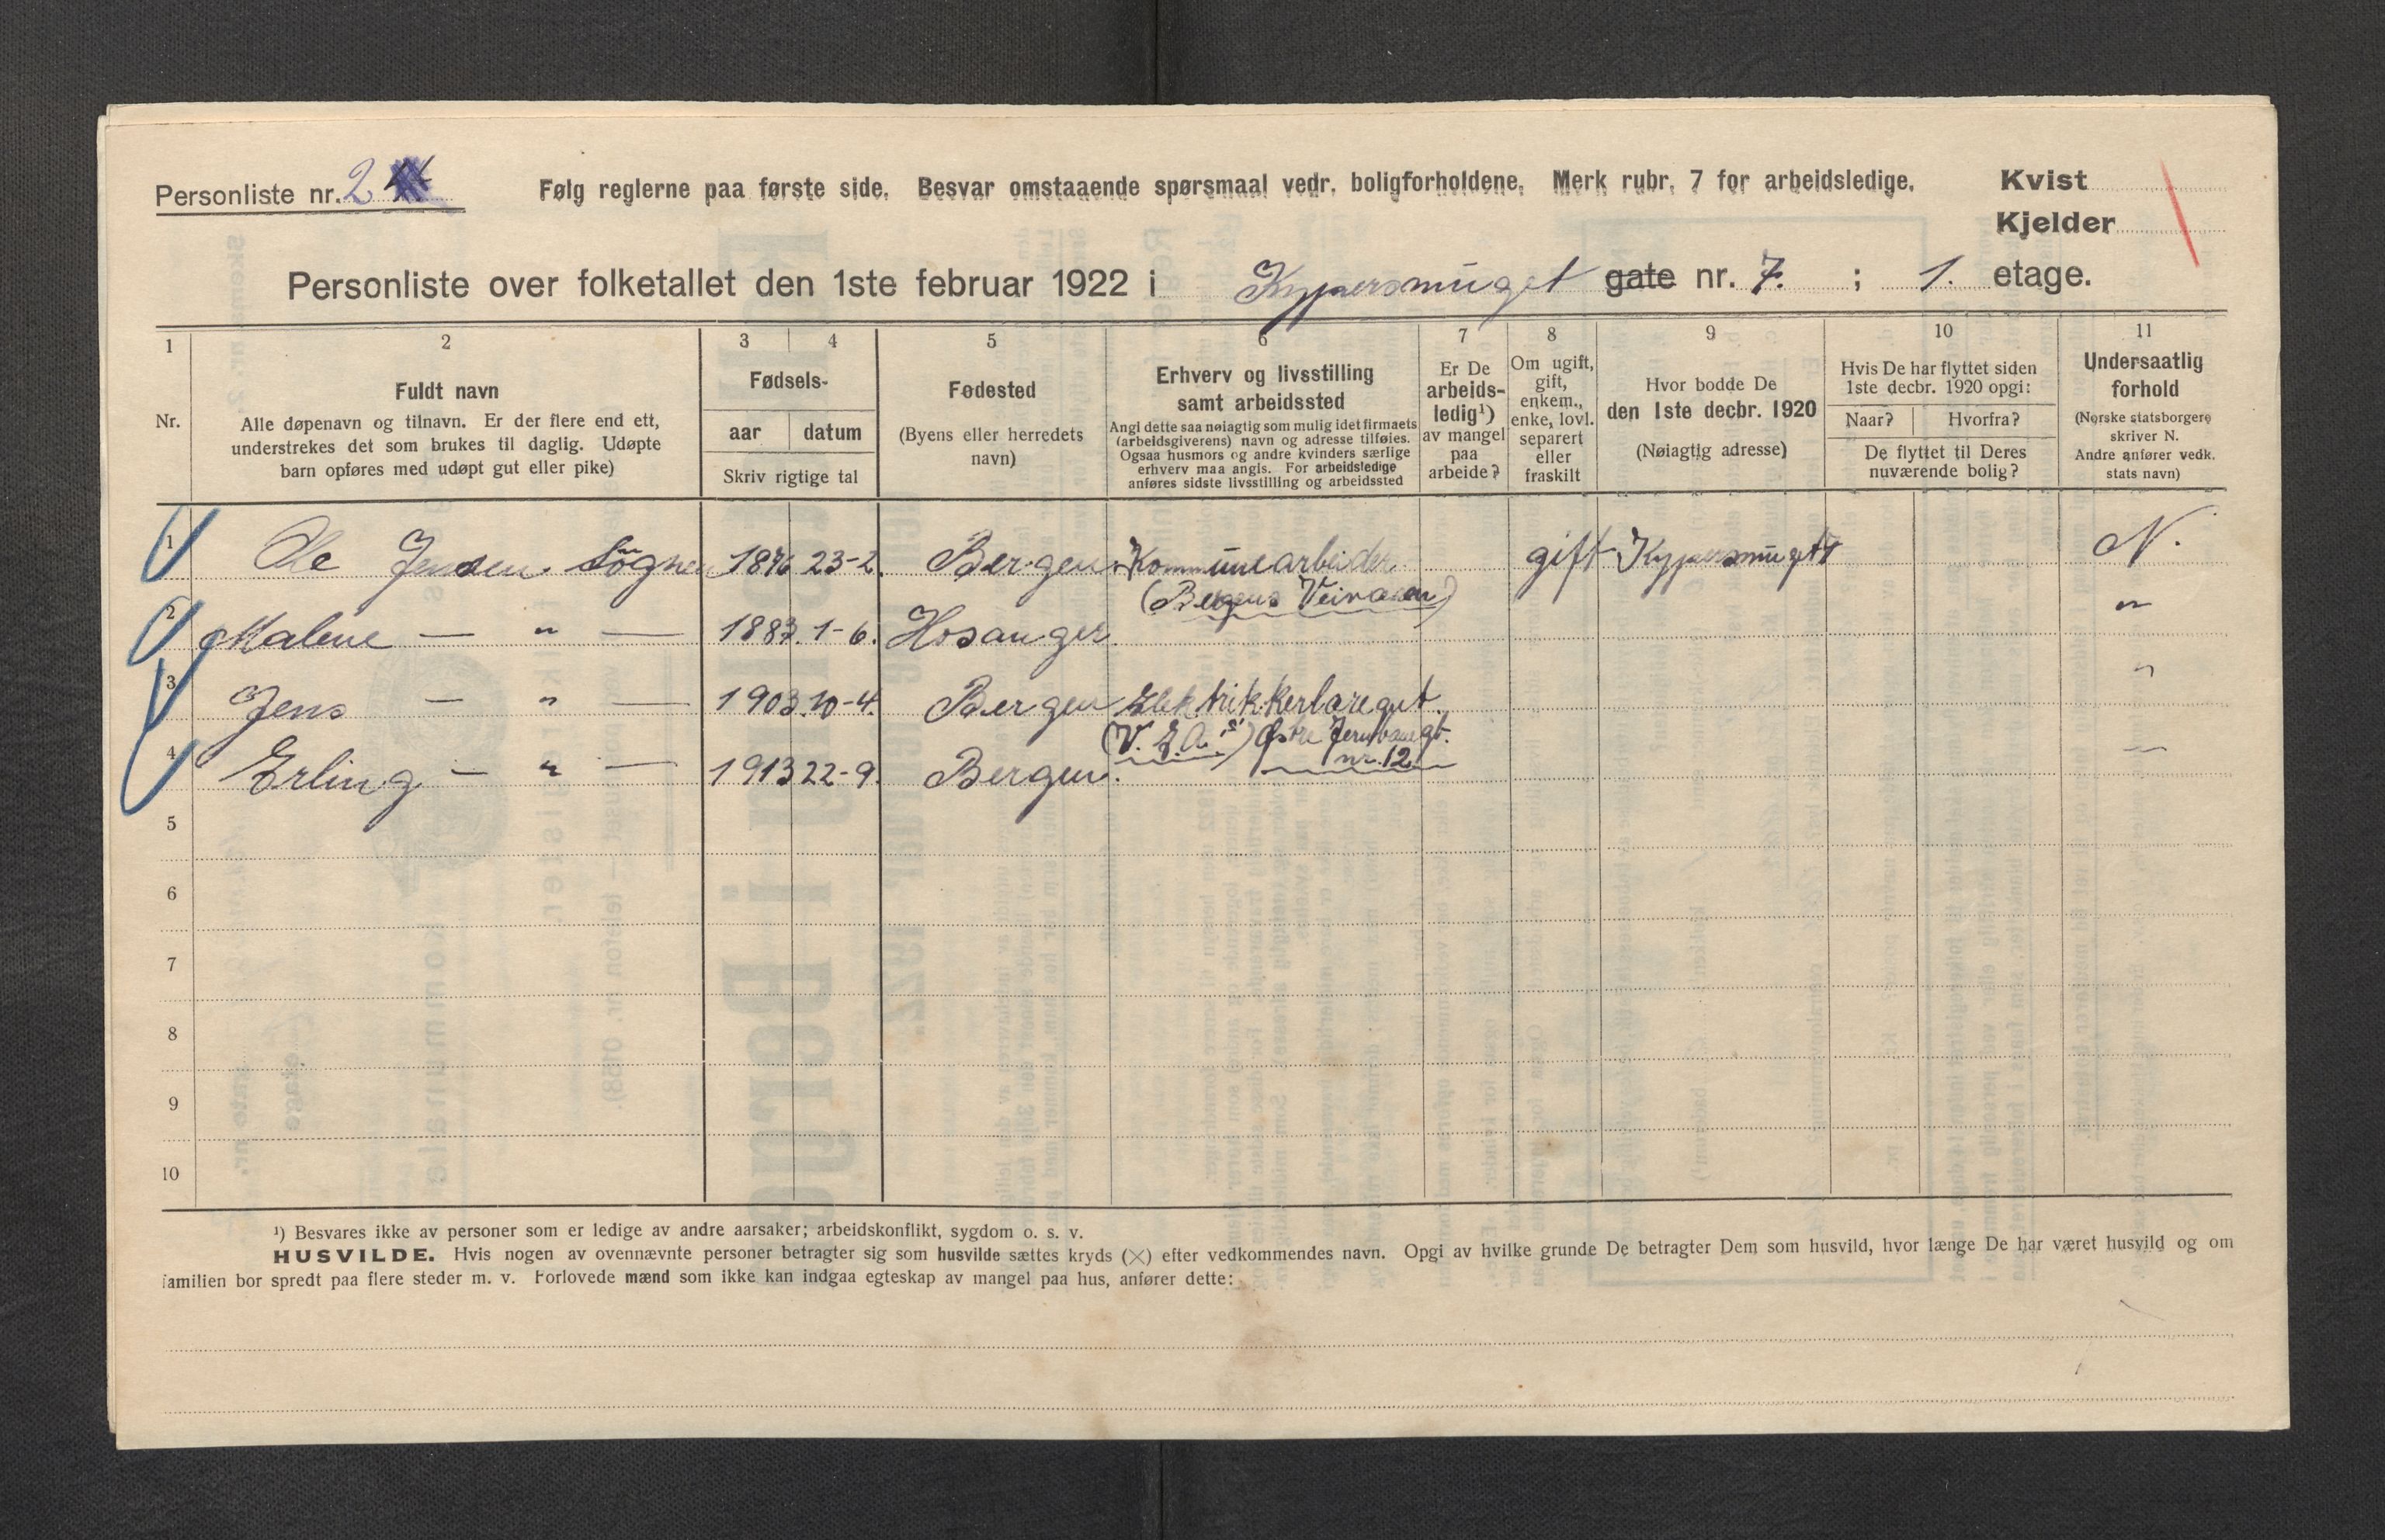 Personliste nr. 2
Følg reglerne paa første side. Besvar omstaaende spørsmaal vedr. boligforholdene. Merk rubr. 7 for arbeidsledige.
Kvist
Kjelder
Personliste over folketallet den 1ste februar 1922 i Kyppersmuget gate nr. 7. ; 1. etage.
1 2 3 4 5 6 7 8 9 10 11
Nr.
Fuldt navn
Alle døpenavn og tilnavn. Er der flere end ett,
understrekes det som brukes til daglig. Udøpte
barn opføres med udøpt gut eller pike)
Fødsels-
aar datum
Skriv rigtige tal
Fødested
(Byens eller herredets
navn)
Erhverv og livsstilling
samt arbeidssted
Angi dette saa nøiagtig som mulig idet firmaets
(arbeidsgiverens) navn og adresse tilføies.
Ogsaa husmors og andre kvinders særlige
erhverv maa angis. For arbeidsledige
anføres sidste livsstilling og arbeidssted
Er De
arbeids-
ledig¹)
av mangel
paa
arbeide?
Om ugift,
gift,
enkem.,
enke, lovl.
separert
eller
fraskilt
Hvor bodde De
den 1ste decbr. 1920
(Nøiagtig adresse)
Hvis De har flyttet siden
1ste decbr. 1920 opgi:
Naar? Hvorfra?
De flyttet til Deres
nuværende bolig?
Undersaatlig
forhold
(Norske statsborgere
skriver N.
Andre anfører vedk.
stats navn)
1 Ole Jensen Søgnen 1876 23-2. Bergen Kommunearbeider gift Kyppersmuget 7 N.
(Bergens Veivæsen)
2 Malene — " — 1883. 1-6. Hosanger "
3 Jens — " — 1903. 10-4. Bergen Elektrikkerlæregut. "
(V. E. A.) Østre Jernbanegt.
nr. 12
4 Erling — " — 1913 22-9. Bergen. —
5
6
7
8
9
10
¹) Besvares ikke av personer som er ledige av andre aarsaker; arbeidskonflikt, sygdom o. s. v.
HUSVILDE. Hvis nogen av ovennævnte personer betragter sig som husvilde sættes kryds (×) efter vedkommendes navn. Opgi av hvilke grunde De betragter Dem som husvild, hvor længe De har været husvild og om
familien bor spredt paa flere steder m. v. Forlovede mænd som ikke kan indgaa egteskap av mangel paa hus, anfører dette: